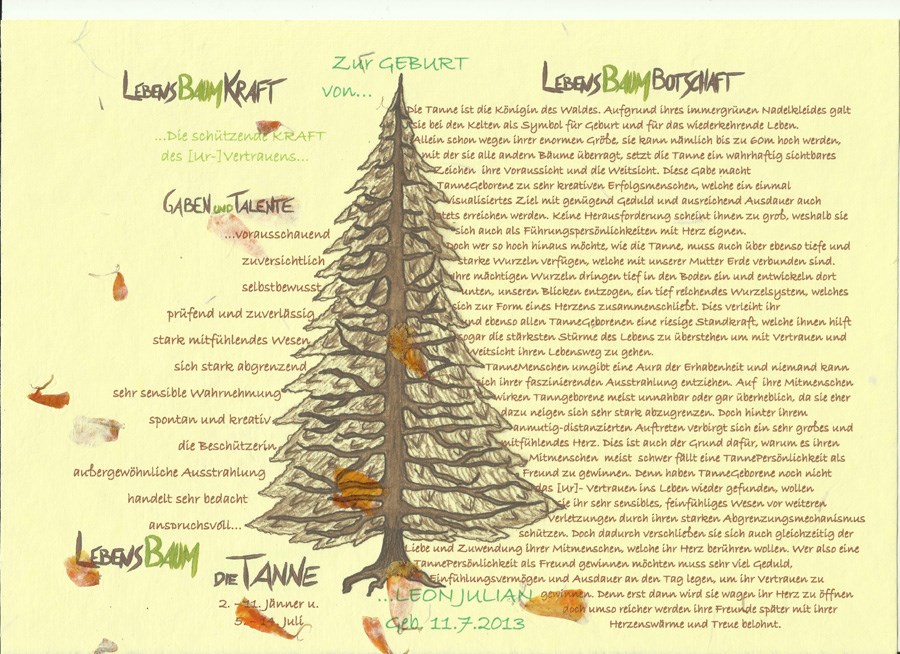 Zur GEBURT
von...
LEBENSBAUMKRAFT
...Die schützende KRAFT
des [Ur-]Vertrauens...
GABEN UND TALENTE
...vorausschauend
zuversichtlich
selbstbewusst
prüfend und zuverlässig
stark mitfühlendes Wesen
sich stark abgrenzend
sehr sensible Wahrnehmung
spontan und kreativ
die Beschützerin
außergewöhnliche Ausstrahlung
handelt sehr bedacht
anspruchsvoll...
LEBENSBAUM
DIE TANNE
2. - 11. Jänner u.
5. - 14. Juli
LEBENSBAUMBOTSCHAFT
Die Tanne ist die Königin des Waldes. Aufgrund ihres immergrünen Nadelkleides galt
sie bei den Kelten als Symbol für Geburt und für das wiederkehrende Leben.
Allein schon wegen ihrer enormen Größe, sie kann nämlich bis zu 60m hoch werden,
mit der sie alle andern Bäume überragt, setzt die Tanne ein wahrhaftig sichtbares
Zeichen ihre Voraussicht und die Weitsicht. Diese Gabe macht
TanneGeborene zu sehr kreativen Erfolgsmenschen, welche ein einmal
visualisiertes Ziel mit genügend Geduld und ausreichend Ausdauer auch
stets erreichen werden. Keine Herausforderung scheint ihnen zu groß, weshalb sie
sich auch als Führungspersönlichkeiten mit Herz eignen.
Doch wer so hoch hinaus möchte, wie die Tanne, muss auch über ebenso tiefe und
starke Wurzeln verfügen, welche mit unserer Mutter Erde verbunden sind.
Ihre mächtigen Wurzeln dringen tief in den Boden ein und entwickeln dort
unten, unseren Blicken entzogen, ein tief reichendes Wurzelsystem, welches
sich zur Form eines Herzens zusammenschließt. Dies verleiht ihr
und ebenso allen TanneGeborenen eine riesige Standkraft, welche ihnen hilft
sogar die stärksten Stürme des Lebens zu überstehen um mit Vertrauen und
Weitsicht ihren Lebensweg zu gehen.
TanneMenschen umgibt eine Aura der Erhabenheit und niemand kann
sich ihrer faszinierenden Ausstrahlung entziehen. Auf ihre Mitmenschen
wirken Tanngeborene meist unnahbar oder gar überheblich, da sie eher
dazu neigen sich sehr stark abzugrenzen. Doch hinter ihrem
anmutig-distanzierten Auftreten verbirgt sich ein sehr großes und
mitfühlendes Herz. Dies ist auch der Grund dafür, warum es ihren
Mitmenschen meist schwer fällt eine TannePersönlichkeit als
Freund zu gewinnen. Denn haben TanneGeborene noch nicht
das [ur]- Vertrauen ins Leben wieder gefunden, wollen
sie ihr sehr sensibles, feinfühliges Wesen vor weiteren
Verletzungen durch ihren starken Abgrenzungsmechanismus
schützen. Doch dadurch verschließen sie sich auch gleichzeitig der
Liebe und Zuwendung ihrer Mitmenschen, welche ihr Herz berühren wollen. Wer also eine
TannePersönlichkeit als Freund gewinnen möchten muss sehr viel Geduld,
Einfühlungsvermögen und Ausdauer an den Tag legen, um ihr Vertrauen zu
gewinnen. Denn erst dann wird sie wagen ihr Herz zu öffnen
doch umso reicher werden ihre Freunde später mit ihrer
Herzenswärme und Treue belohnt.
...LEON JULIAN
Geb. 11.7.2013